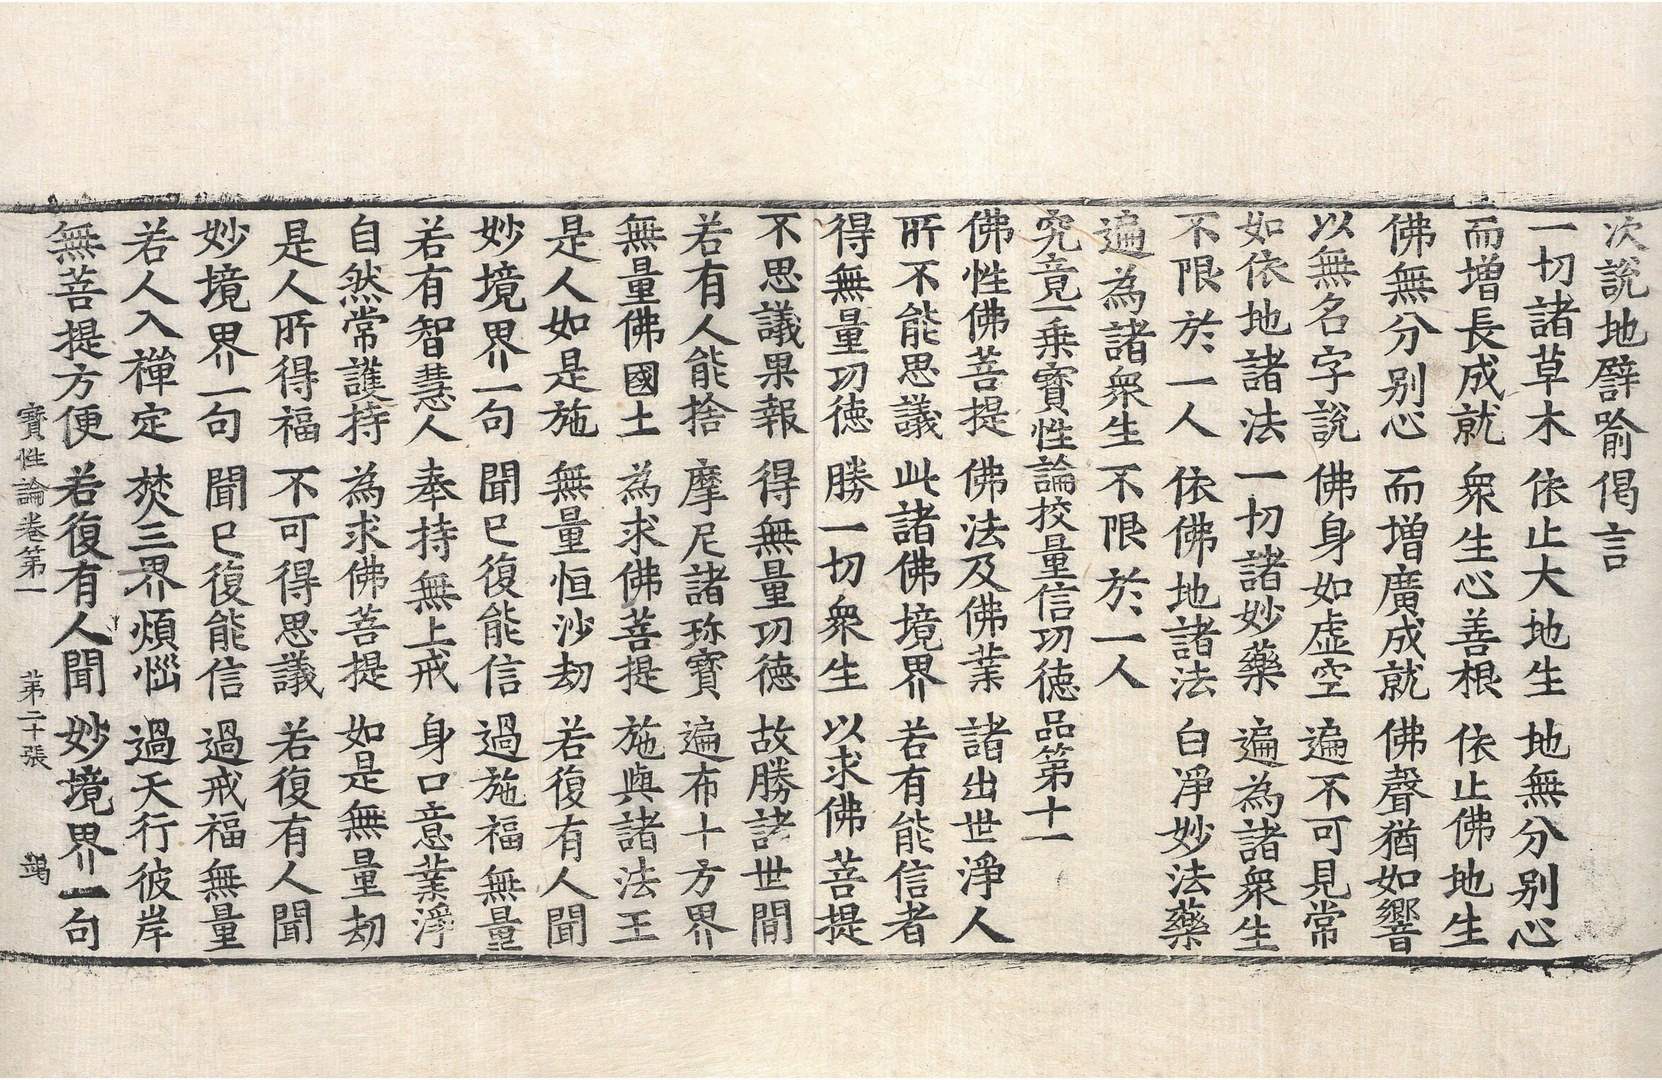 次說地譬喻偈言
一切諸草木 依止大地生 地無分別心
而增長成就 衆生心善根 依止佛地生
佛無分別心 而增廣成就 佛聲猶如響
以無名字說 佛身如虛空 遍不可見常
如依地諸法 一切諸妙藥 遍為諸衆生
不限於一人 依佛地諸法 白淨妙法藥
遍為諸衆生 不限於一人
究竟一乘寶性論校量信功徳品第十一
佛性佛菩提 佛法及佛業 諸出世淨人
所不能思議 此諸佛境界 若有能信者
得無量功徳 勝一切衆生 以求佛菩提
不思議果報 得無量功徳 故勝諸世間
若有人能捨 摩尼諸珎寶 遍布十方界
無量佛國土 為求佛菩提 施與諸法王
是人如是施 無量恒沙劫 若復有人聞
妙境界一句 聞已復能信 過施福無量
若有智慧人 奉持無上戒 身口意業淨
自然常護持 為求佛菩提 如是無量劫
是人所得福 不可得思議 若復有人聞
妙境界一句 聞已復能信 過戒福無量
若人入禪定 焚三界煩惱 過天行彼岸
無菩提方便 若復有人聞 妙境界一句
寶性論卷第一 第二十張 鵠